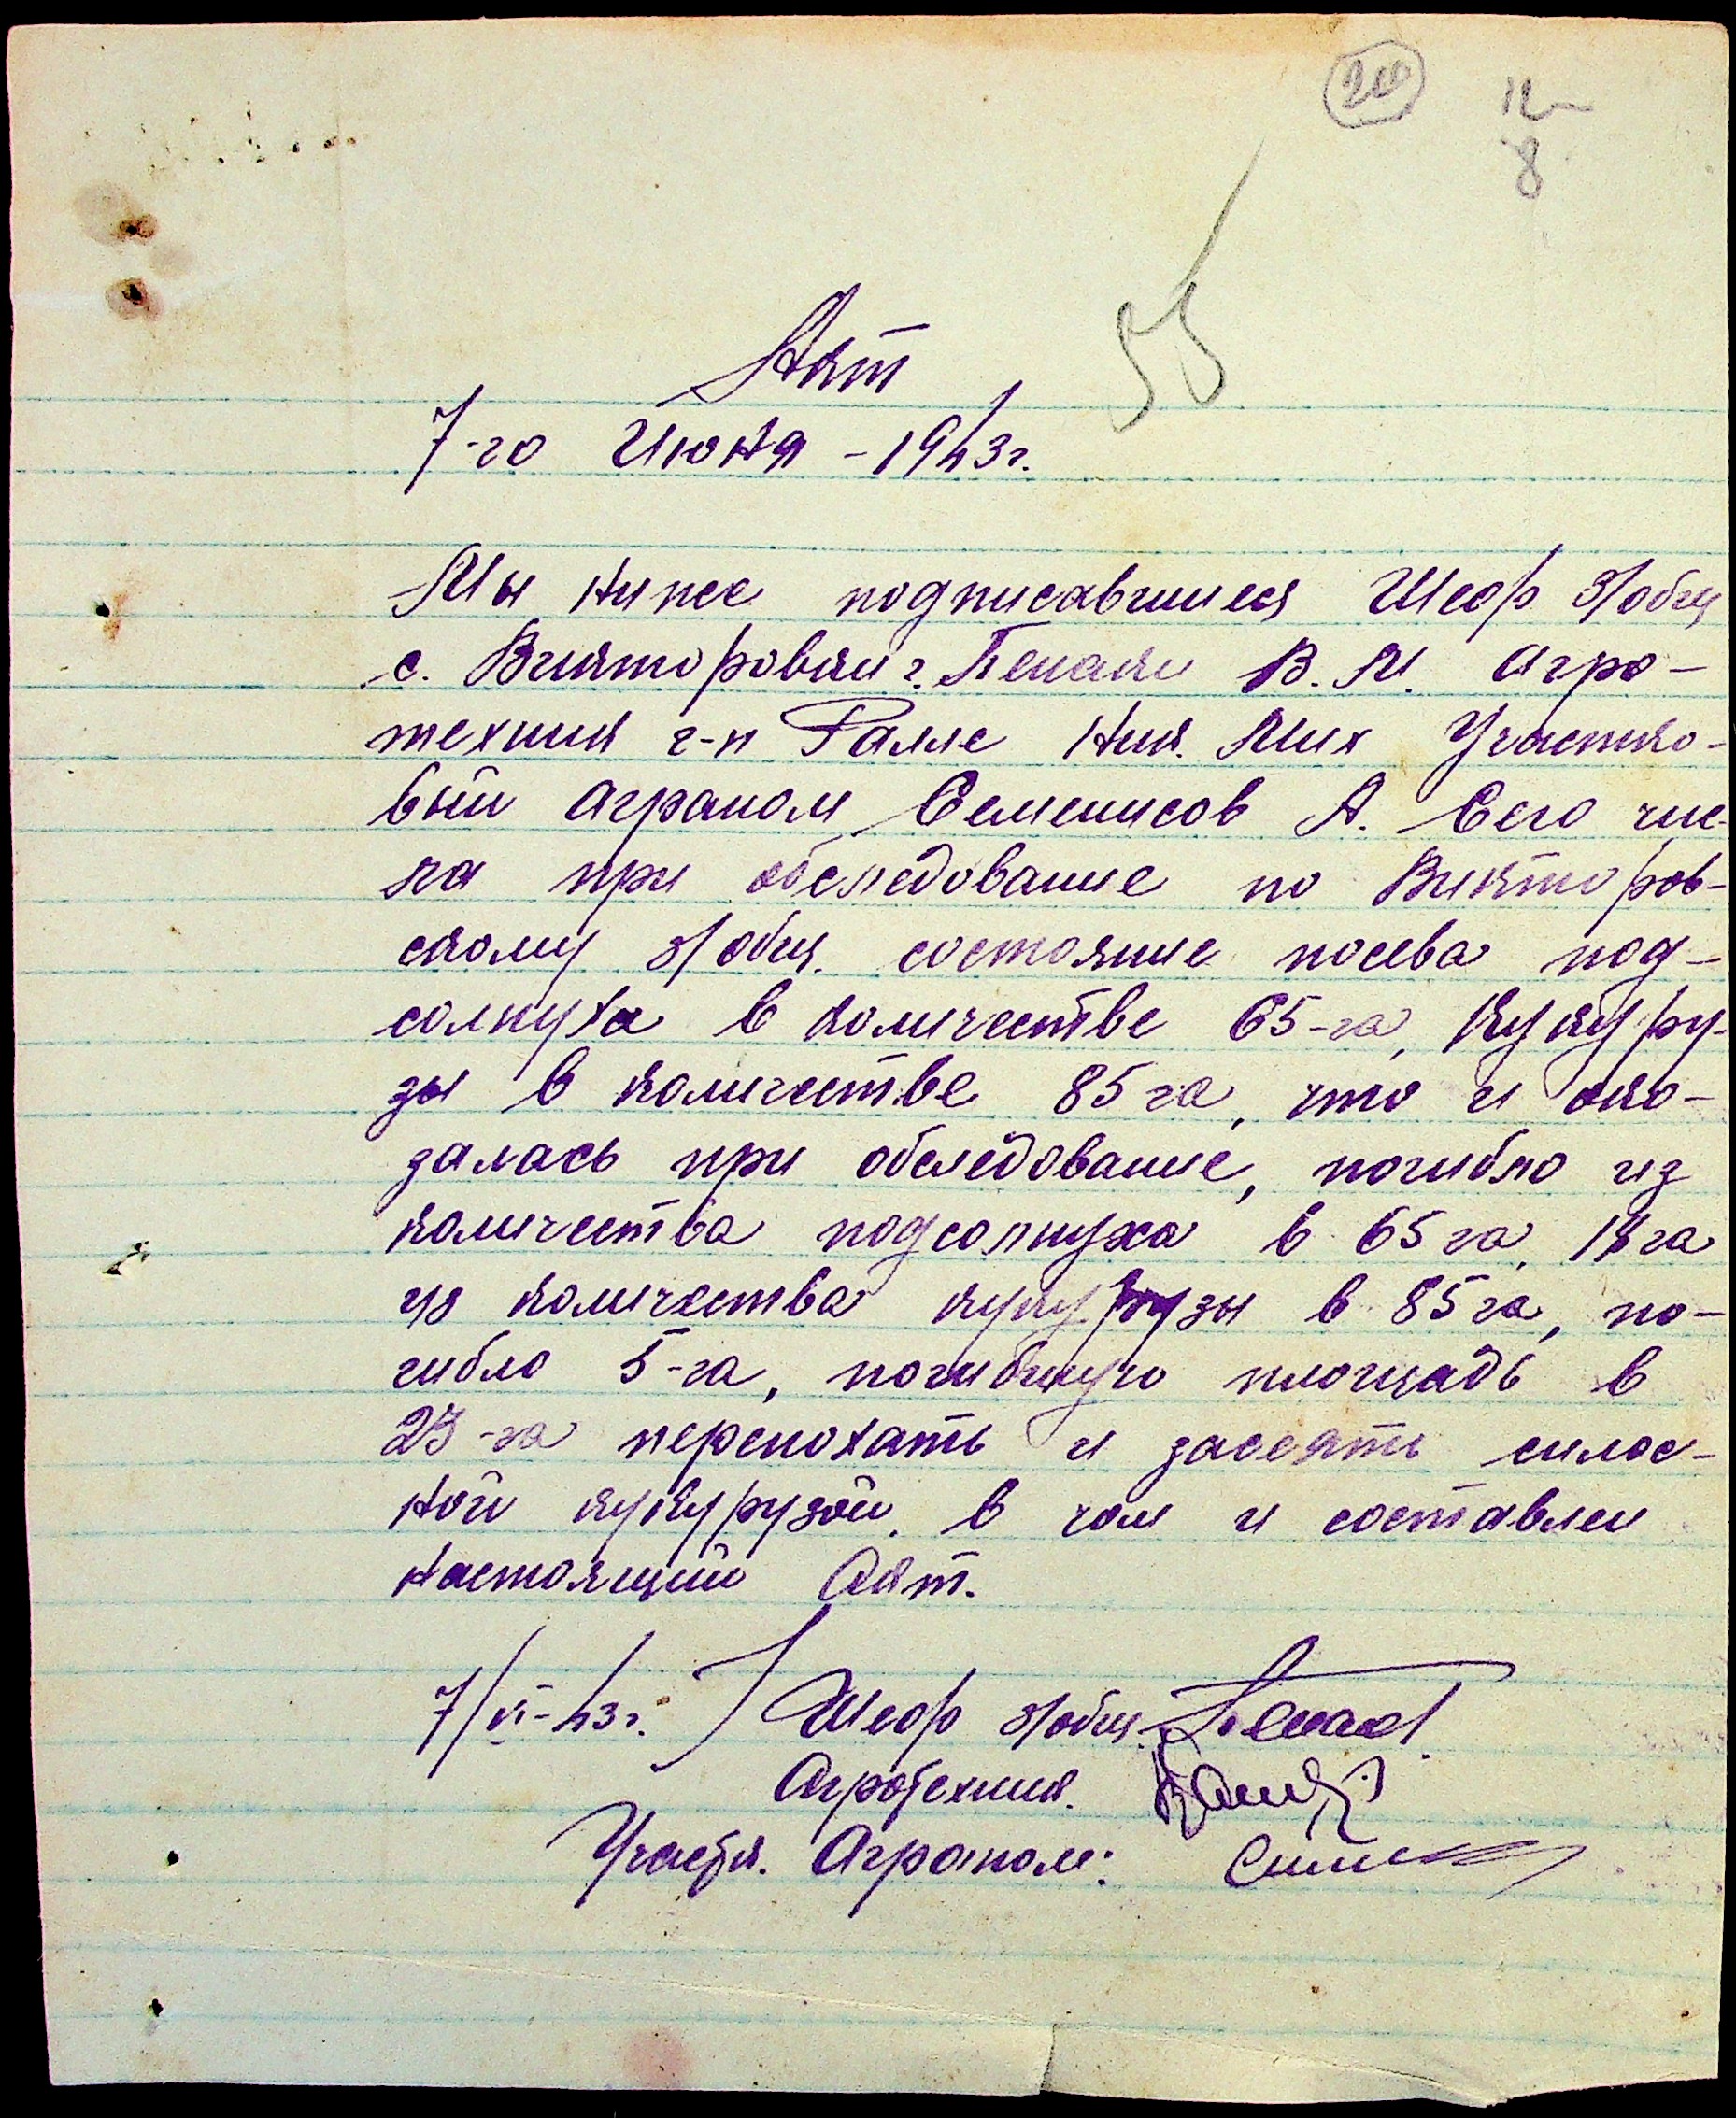 20
12
8
55
Акт
7-го Июня - 1943 г.
Мы ниже подписавшиеся Шеф з/общ
с. Викторовки г. Пекаж В. М. агро-
техник г-н Ралле Ник. Мих Участко-
вый аграном Семенисов А. Сего чис-
ла при обследование по Викторов-
скому з/общ. состояние посева под-
солнуха в количестве 65-га, кукуру-
зы в количестве 85 га, что и ока-
залась при обследование, погибло из
количества подсолнуха в 65 га, 18 га
из количества кукурузы в 85 га, по-
гибло 5-га, погибшую площадь в
23-га перепохать и засеять силос-
ной кукурузой. в чом и составлен
настоящий Акт.
7/VI-43 г. Шеф з/общ.
Агротехник.
Участк. Аграном: